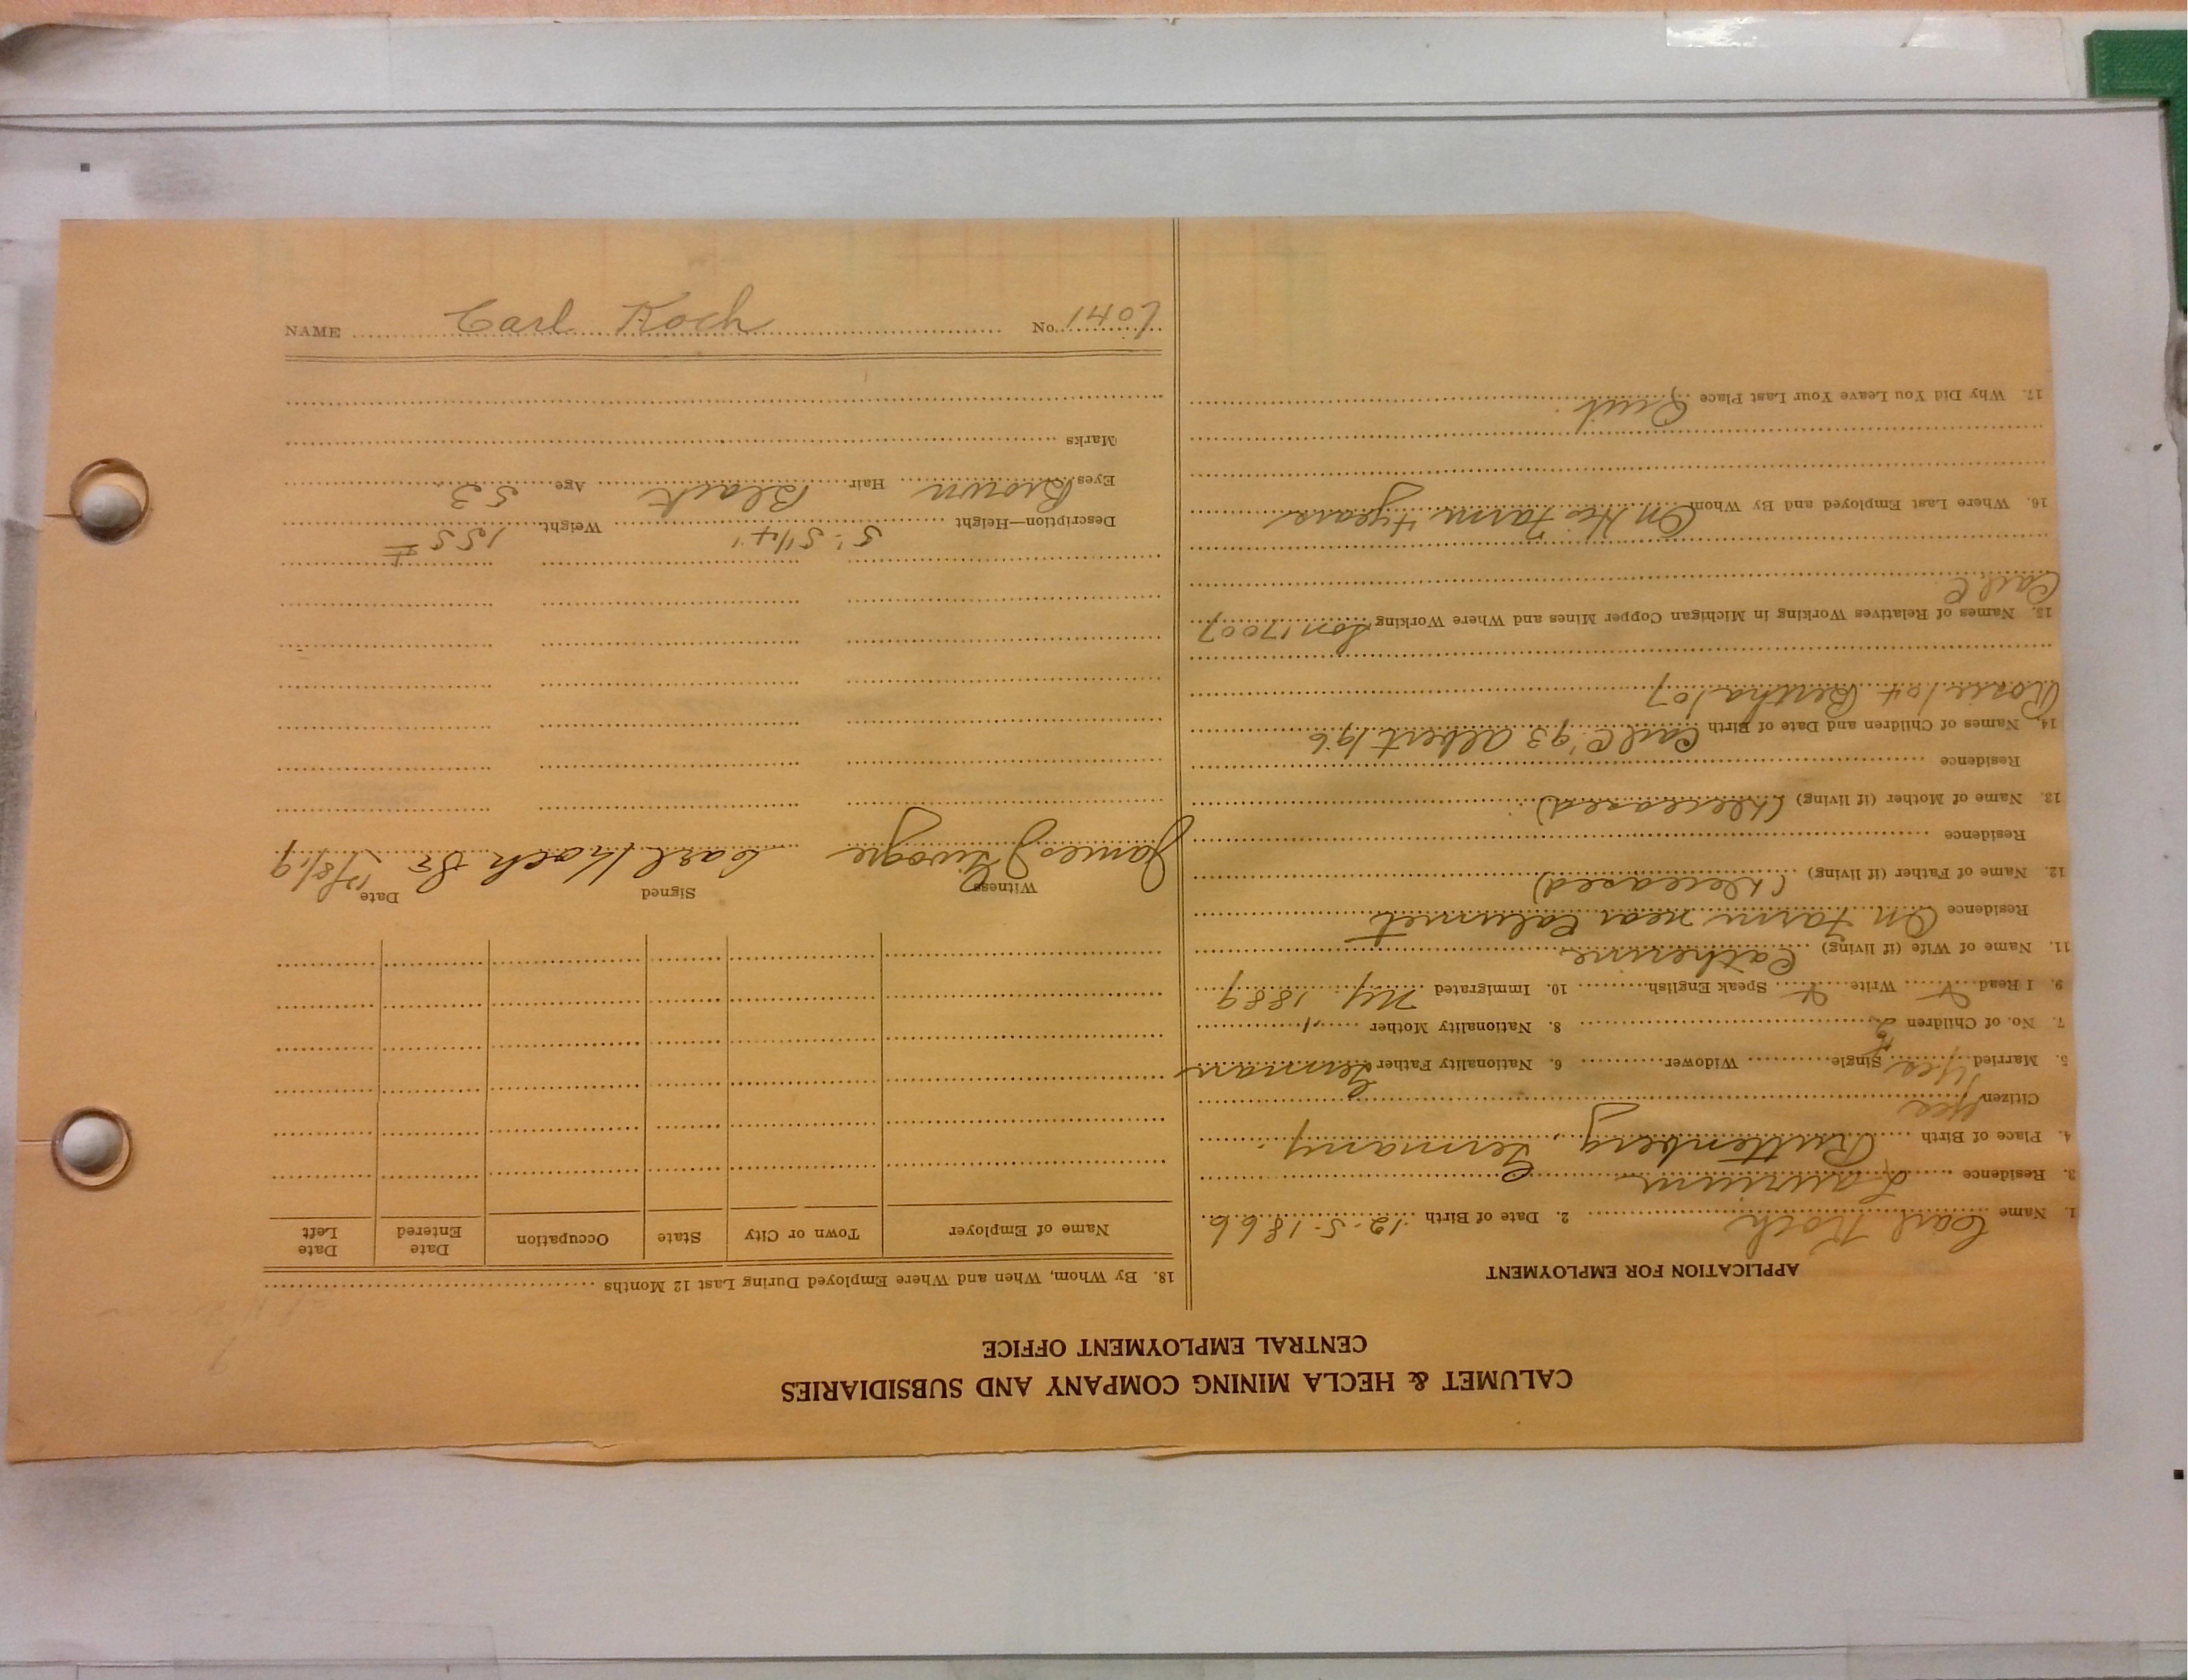 CALUMET & HECLA MINING COMPANY AND SUBSIDIARIES
CENTRAL EMPLOYMENT OFFICE
APPLICATION FOR EMPLOYMENT
1. Name Carl Koch 2. Date of Birth 12-5-1866
3. Residence Laurium
4. Place of Birth Ruttenberg, Germany
Citizen yes
5. Married yes Single Widower 6. Nationality Father German
7. No. of Children 8. Nationality Mother "
9. I Read Write Speak English 10. Immigrated N.Y. 1889
11. Name of Wife (if living) Catherine
Residence On Farm near Calumet
12. Name of Father (if living) (deceased)
Residence
13. Name of Mother (if living) (deceased)
Residence
14. Names of Children and Date of Birth Carl C. '93 Albert '96
Rosie '04 Bertha '07
15. Names of Relatives Working in Michigan Copper Mines and Where Working Son 17007
Carl C.
16. Where Last Employed and By Whom On His Farm 4 years
17. Why Did You Leave Your Last Place Quit.
18. By Whom, When and Where Employed During Last 12 Months
Name of Employer Town or City State Occupation Date Entered Date Left
Witness Signed Date
James Carl Koch Sr
Description—Height 5'-5 1/4" Weight 155 #
Eyes Brown Hair Black Age 53
Marks
NAME Carl Koch No. 1407